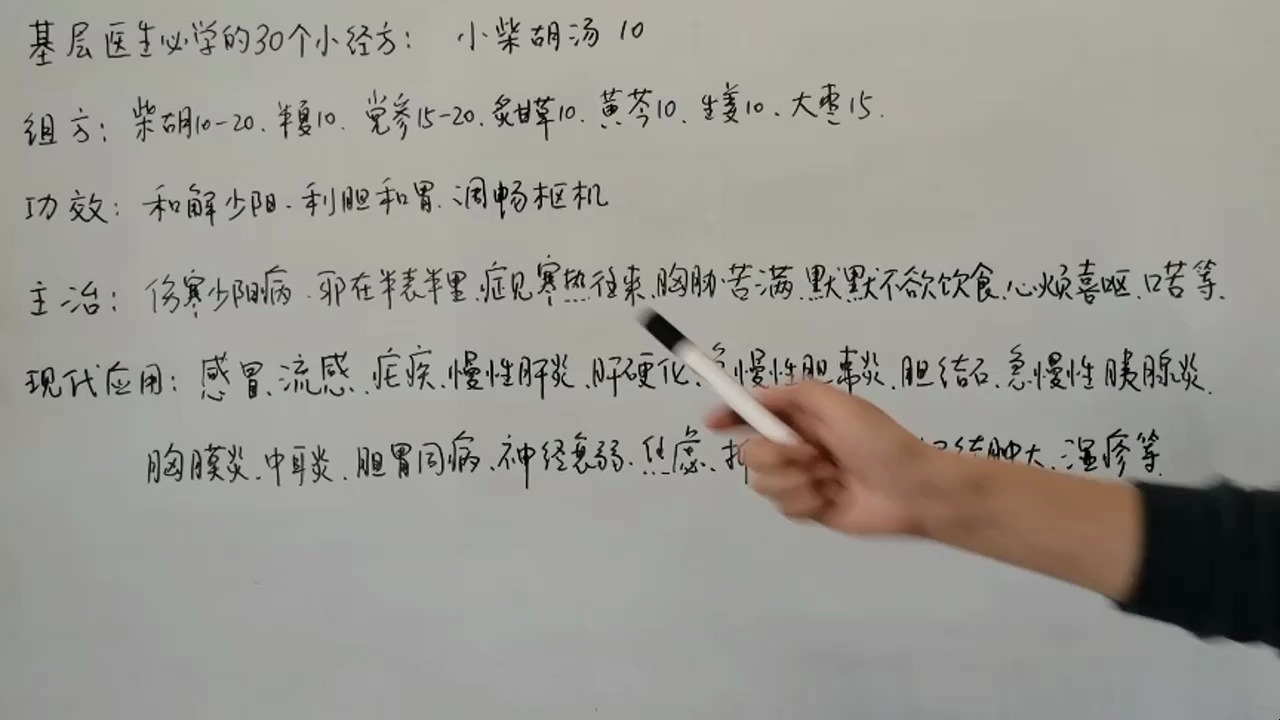 基层医生必学的30个小经方： 小柴胡汤 10
组方：柴胡10-20、半夏10、党参15-20、炙甘草10、黄芩10、生姜10、大枣15.
功效：和解少阳、利胆和胃、调畅枢机
主治：伤寒少阳病、邪在半表半里、症见寒热往来、胸胁苦满、默默不欲饮食、心烦喜呕、口苦等.
现代应用：感冒、流感、疟疾、慢性肝炎、肝硬化、急慢性胆囊炎、胆结石、急慢性胰腺炎、
胸膜炎、中耳炎、胆胃同病、神经衰弱、焦虑、 结肿大、湿疹等